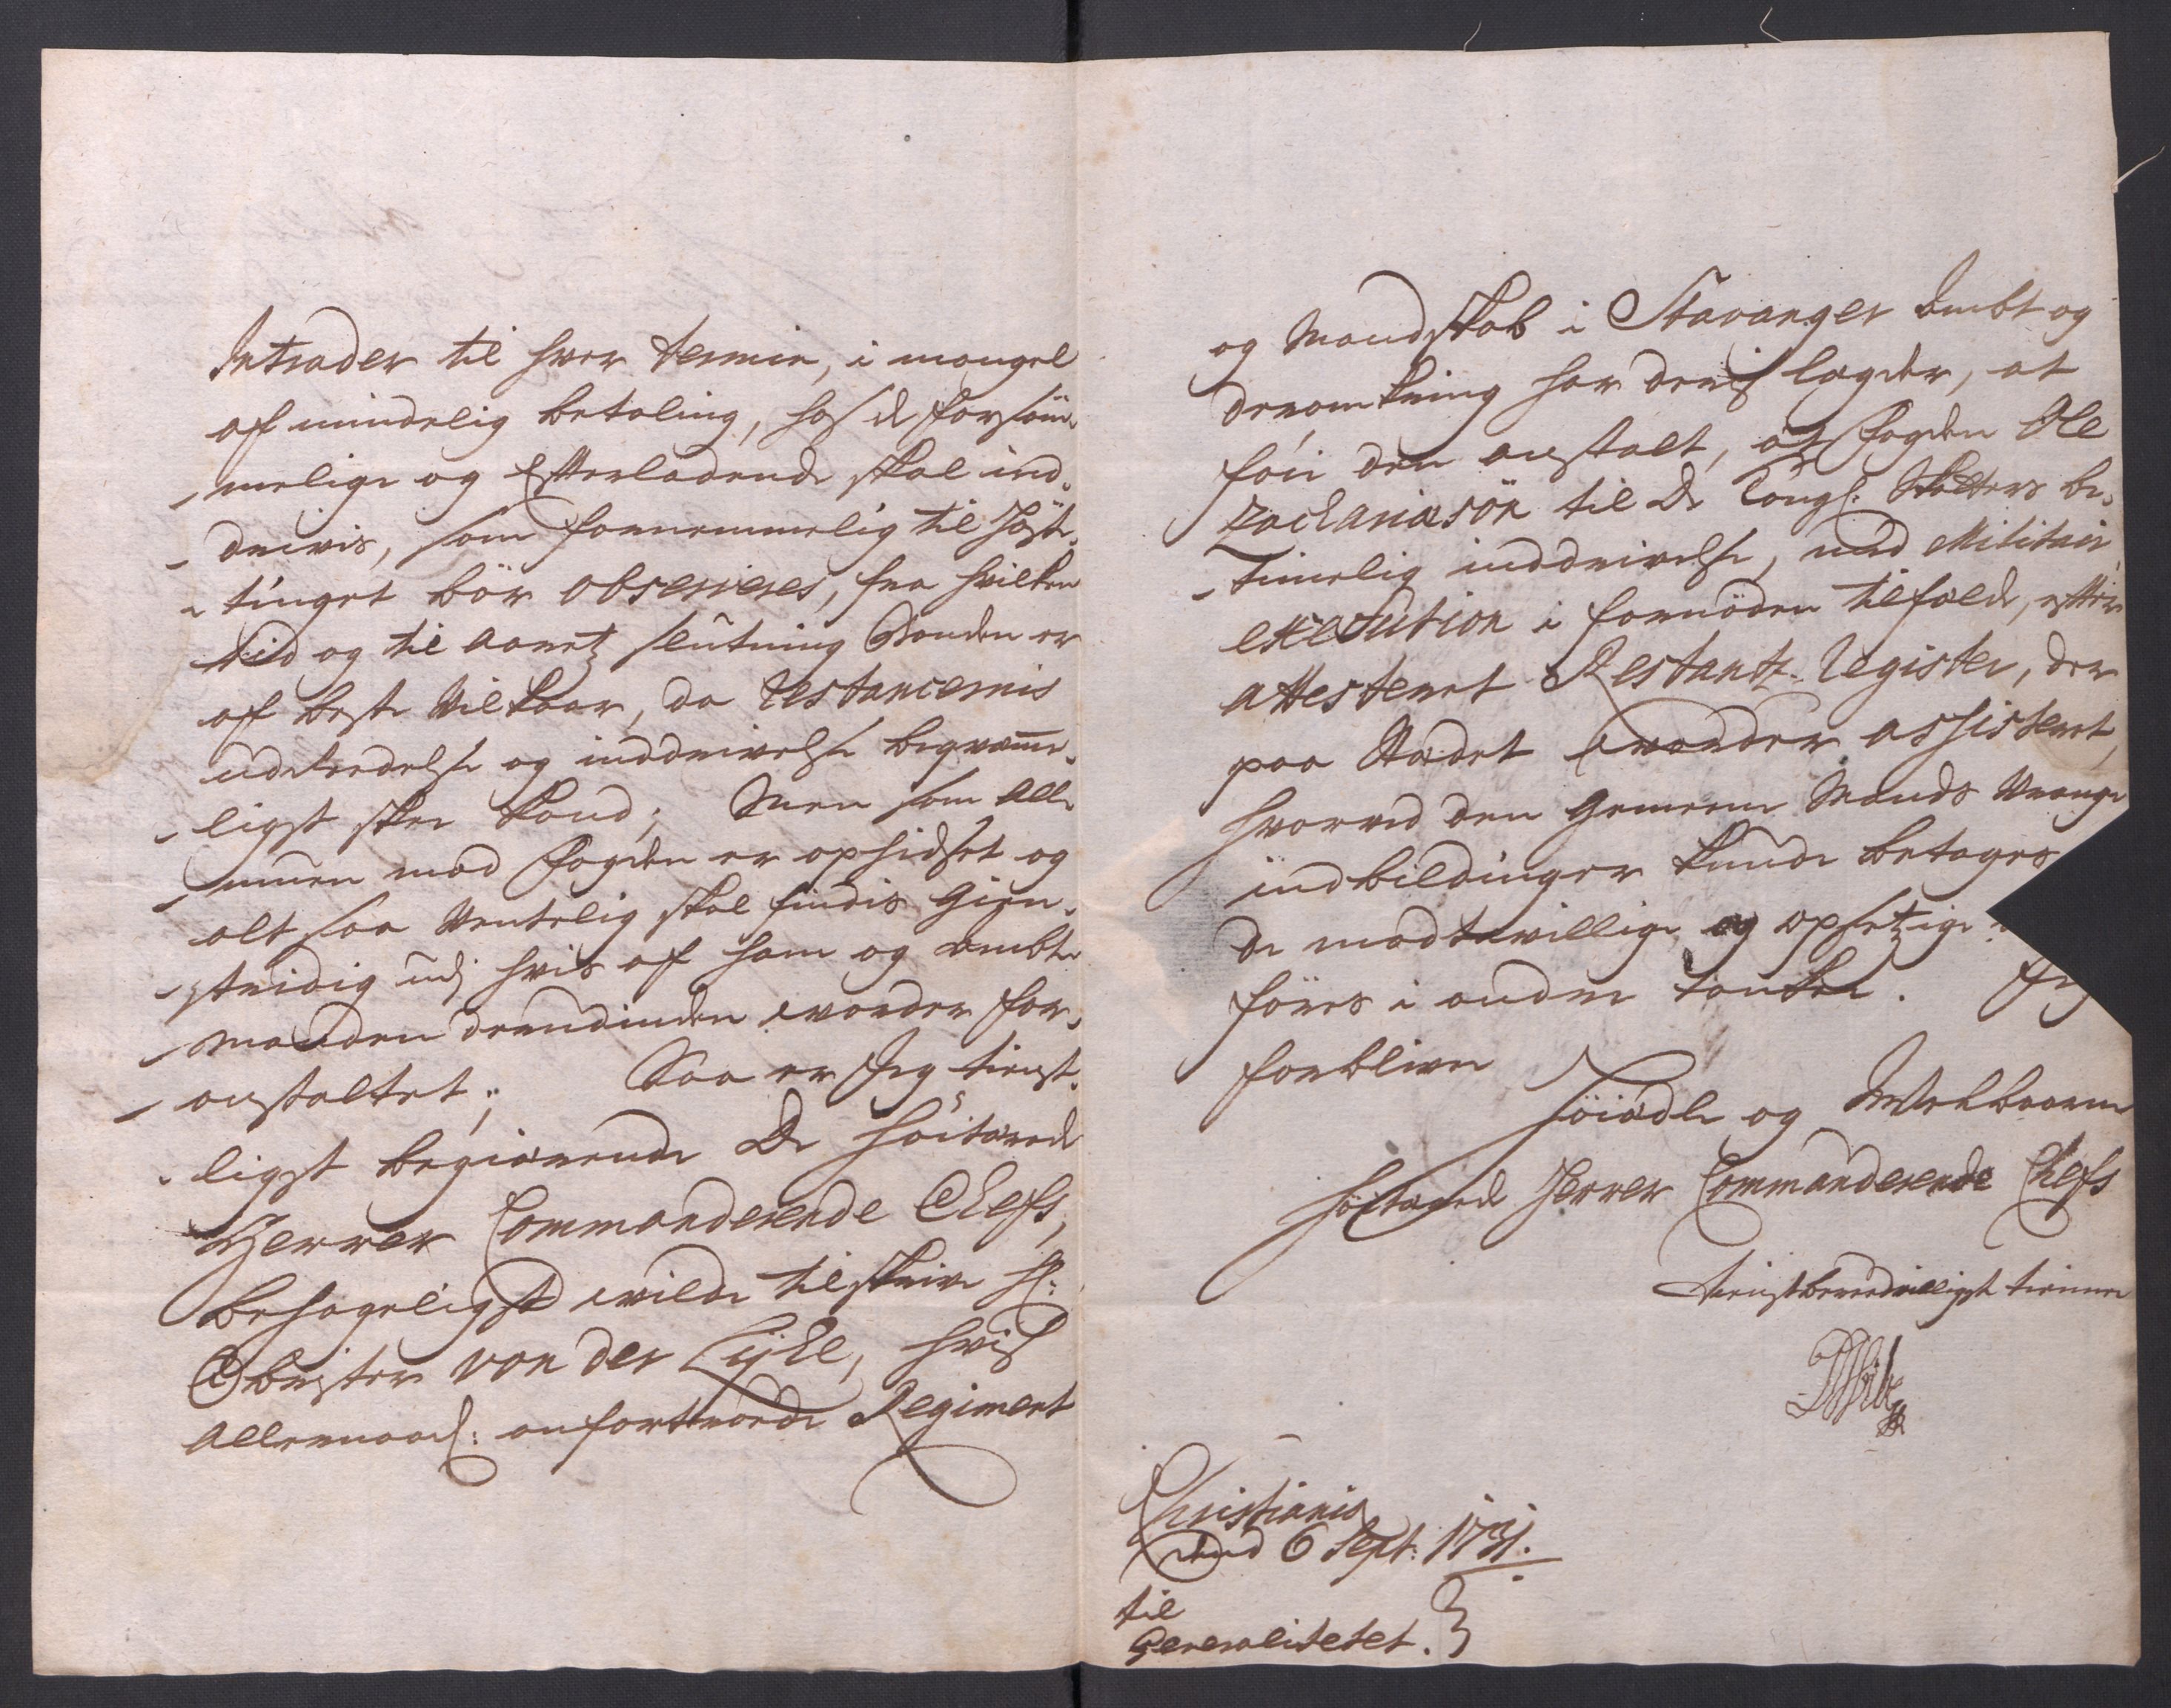 Intrader til hver termin, i mangel
af mindelig betaling, hos de forsöm¬
melige og Efterladende skal ind¬
drivis, som fornemmelig til Höste¬
tinget bör observeres, fra hvilken
tid og til Aaretz slutning Bonden er
af beste Vilkaar, da Restancernis
udekredelse og inddrivelse beqvemme¬
ligst skee kand; Men som All¬
muen mod Fogden er ophidset og
alt saa Ventelig skal findis Gien¬
stridig udj hvis af ham og Ambt¬
manden derudinden vorder for¬
anstaltet; Saa er Jeg tienst¬
ligst begierende De Höitærede
Herrer Commanderende Chefs,
behageligst wilde tilskrive H:
Obrister von der Lÿhe, hvis
Allernaad: anfortroede Regiment
og Mandskab i Stavanger Ambt og
deromkring har deris lægder, at
föie den anstalt, at Fogden Ole
Zachariæsön til De Kongl: Skatters be¬
timelig inddrivelse, med Militair
execution i fornöden tilfælde, efter
attesteret Restantz-Register, der
paa Stædet vorder assisteret,
hvorved den Gemeene Mands Vrange
indbildinger kunde betages
de modtvillige og opsetzige
föres i anden tanke. Jeg
forbliver
Höiædle og Welbaarne
Höitærede Herrer Commanderende Chefs
tienstbereedvilligst tiener
Christiania
dend 6 Sept: 1731.
til
Generalitetet.